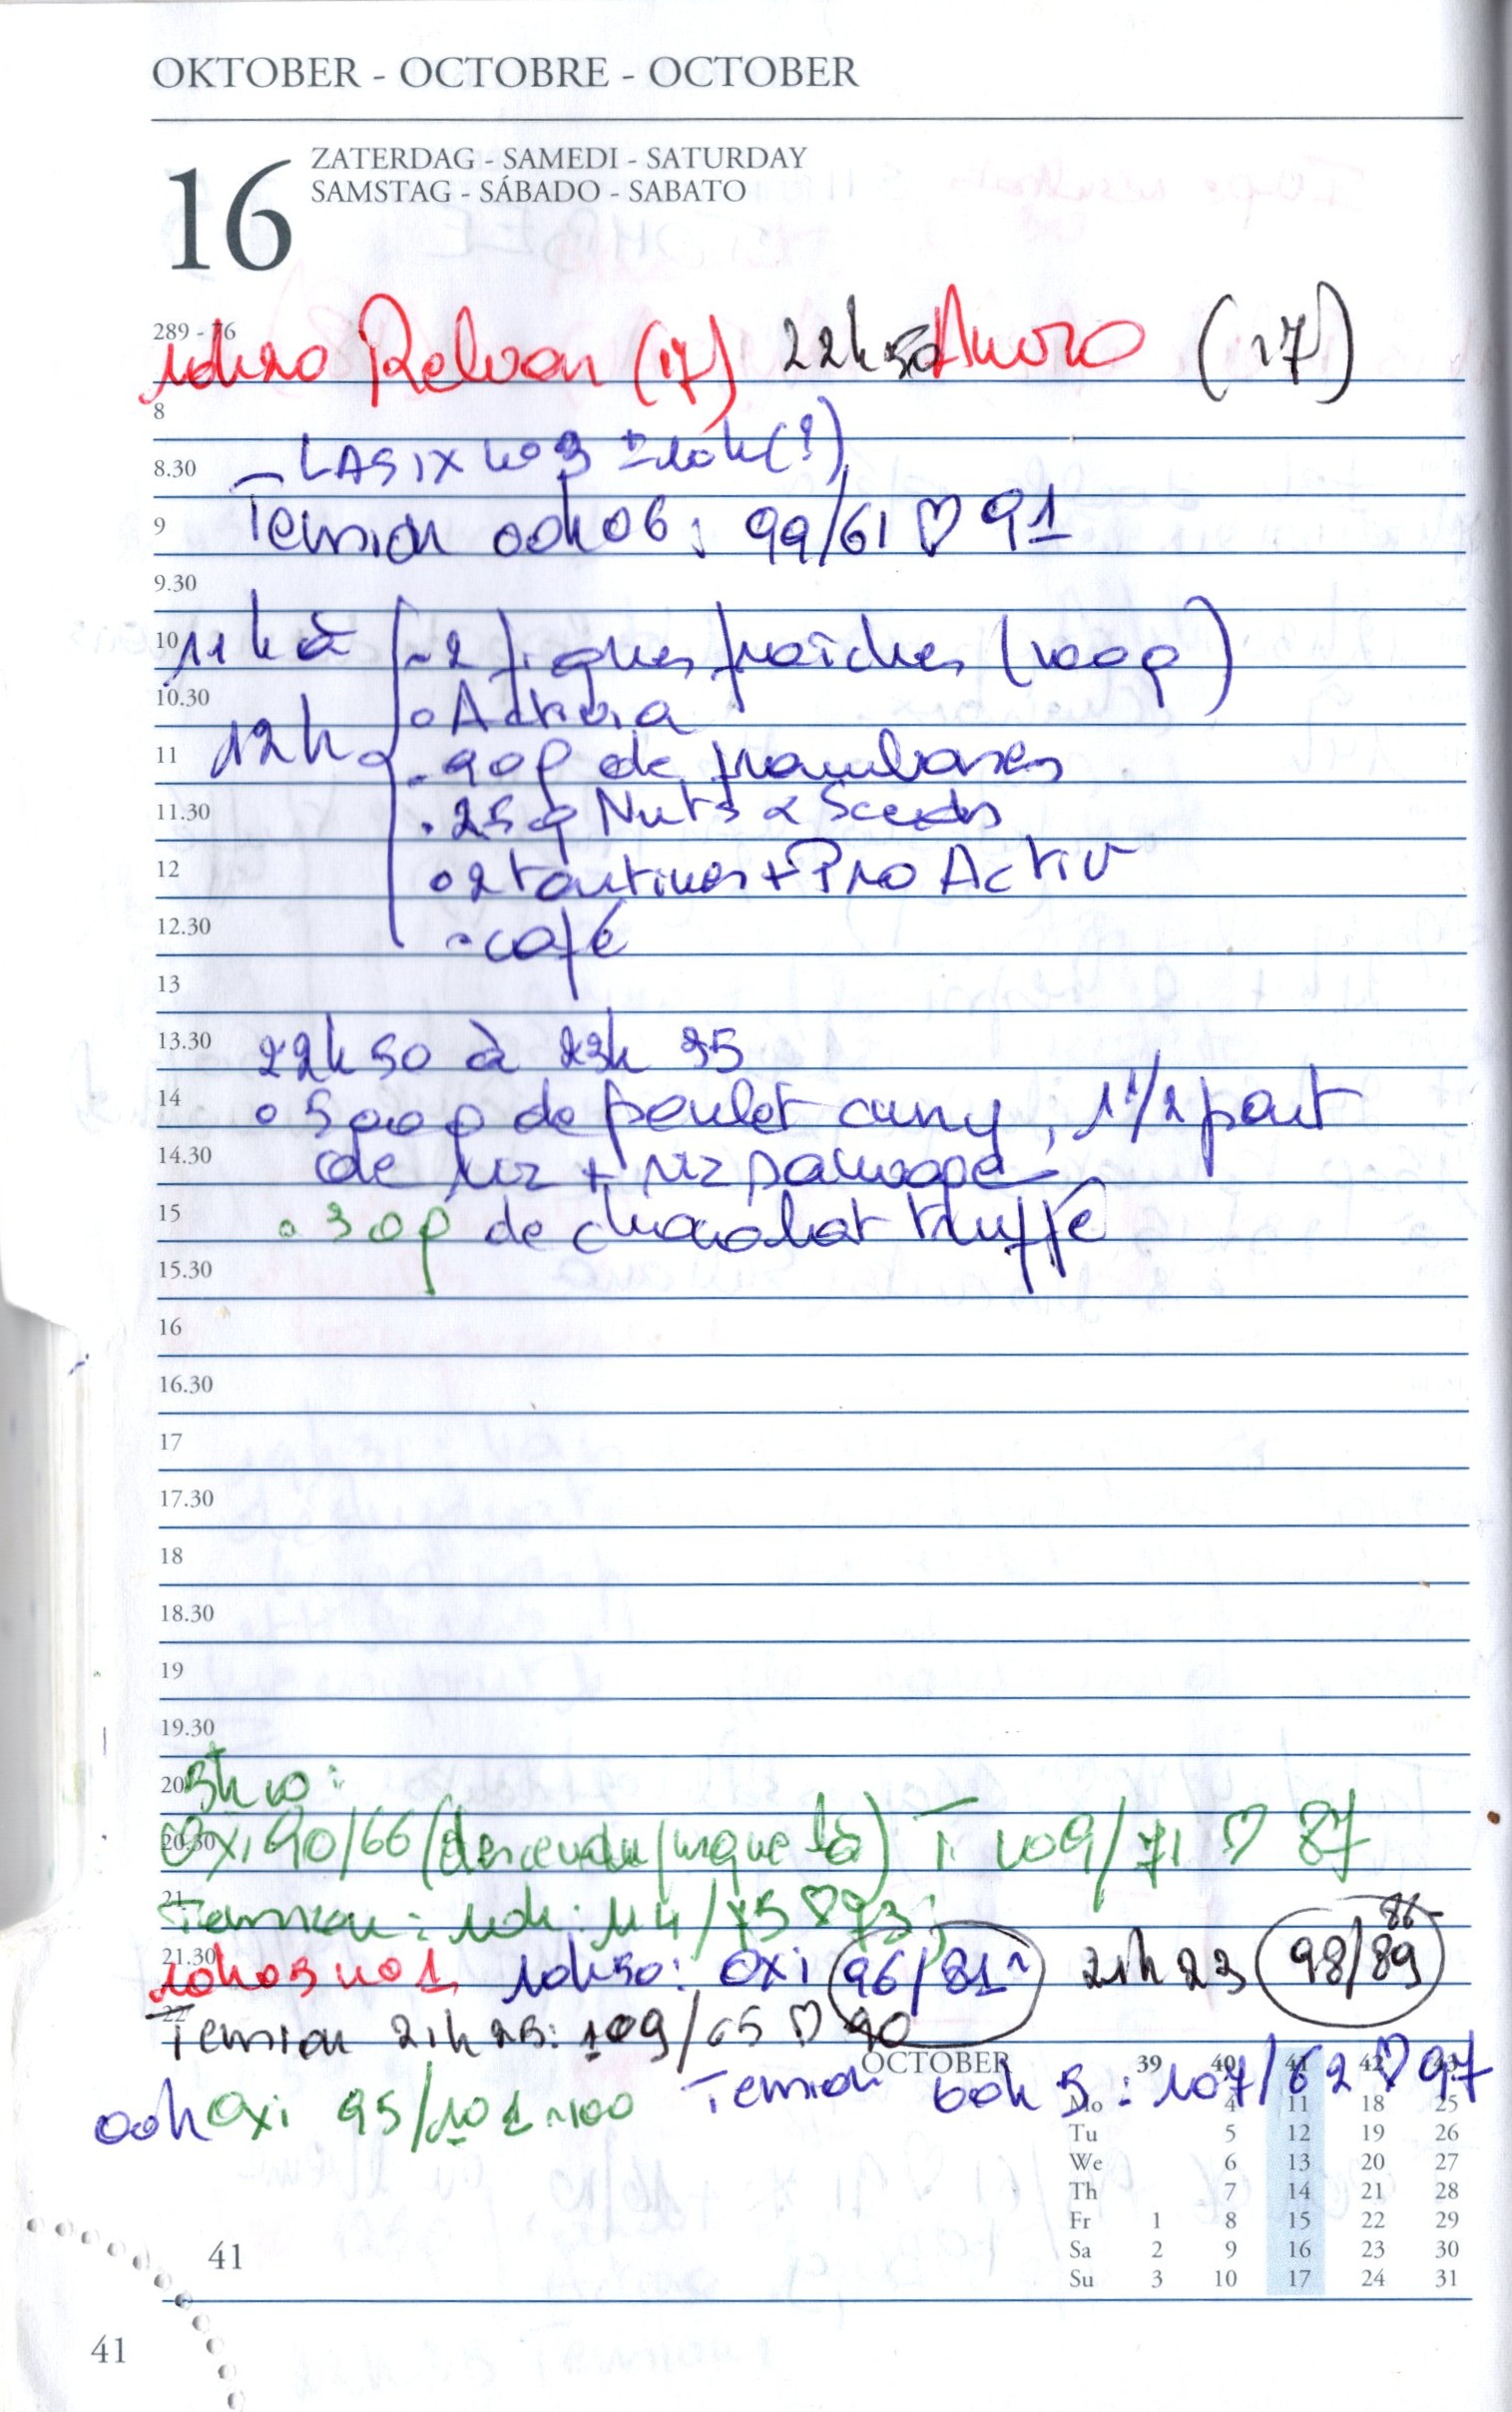 OKTOBER - OCTOBRE - OCTOBER
16
ZATERDAG - SAMEDI - SATURDAY
SAMSTAG - SÁBADO - SABATO
289 - 76
10h20 Relvar (17) 22h50 Anoro (17)
8
8.30 - LASIX no 3 ± 10h (?)
9 Tension 00h06 : 99/61 ♡ 91
9.30
10 11h à - 2 figues fraîches (100g)
10.30 o Actívia
11 12h . 90g de framboises
11.30 . 25g Nuts & Seeds
12 o 2 tartines + Pro Activ
12.30 - café
13
13.30 22h50 à 23h 35
14 o 500g de poulet curry, 1 1/2 part
14.30 de riz + riz sauvage
15 o 30g de chocolat truffé
15.30
16
16.30
17
17.30
18
18.30
19
19.30
20 3h10 :
20.30 Oxi 90/66 (descendu jusque là) T. 109/71 ♡ 87
21 Tension : 10h : 114/75 ♡ 93 ;
21.30 10h03 no 1 10h50 : Oxi 96/81 21h23 98/89 86
22 Tension 21h23 : 109/65 ♡ 90
00h Oxi 95/101 ~100 Tension 00h 5 : 107/62 ♡ 97
OCTOBER 39 40 41 42 43
Mo 4 11 18 25
Tu 5 12 19 26
We 6 13 20 27
Th 7 14 21 28
Fr 1 8 15 22 29
Sa 2 9 16 23 30
Su 3 10 17 24 31
41
41